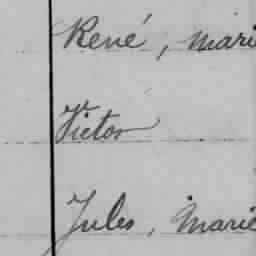 René, mari
Victor
Jules, Marie